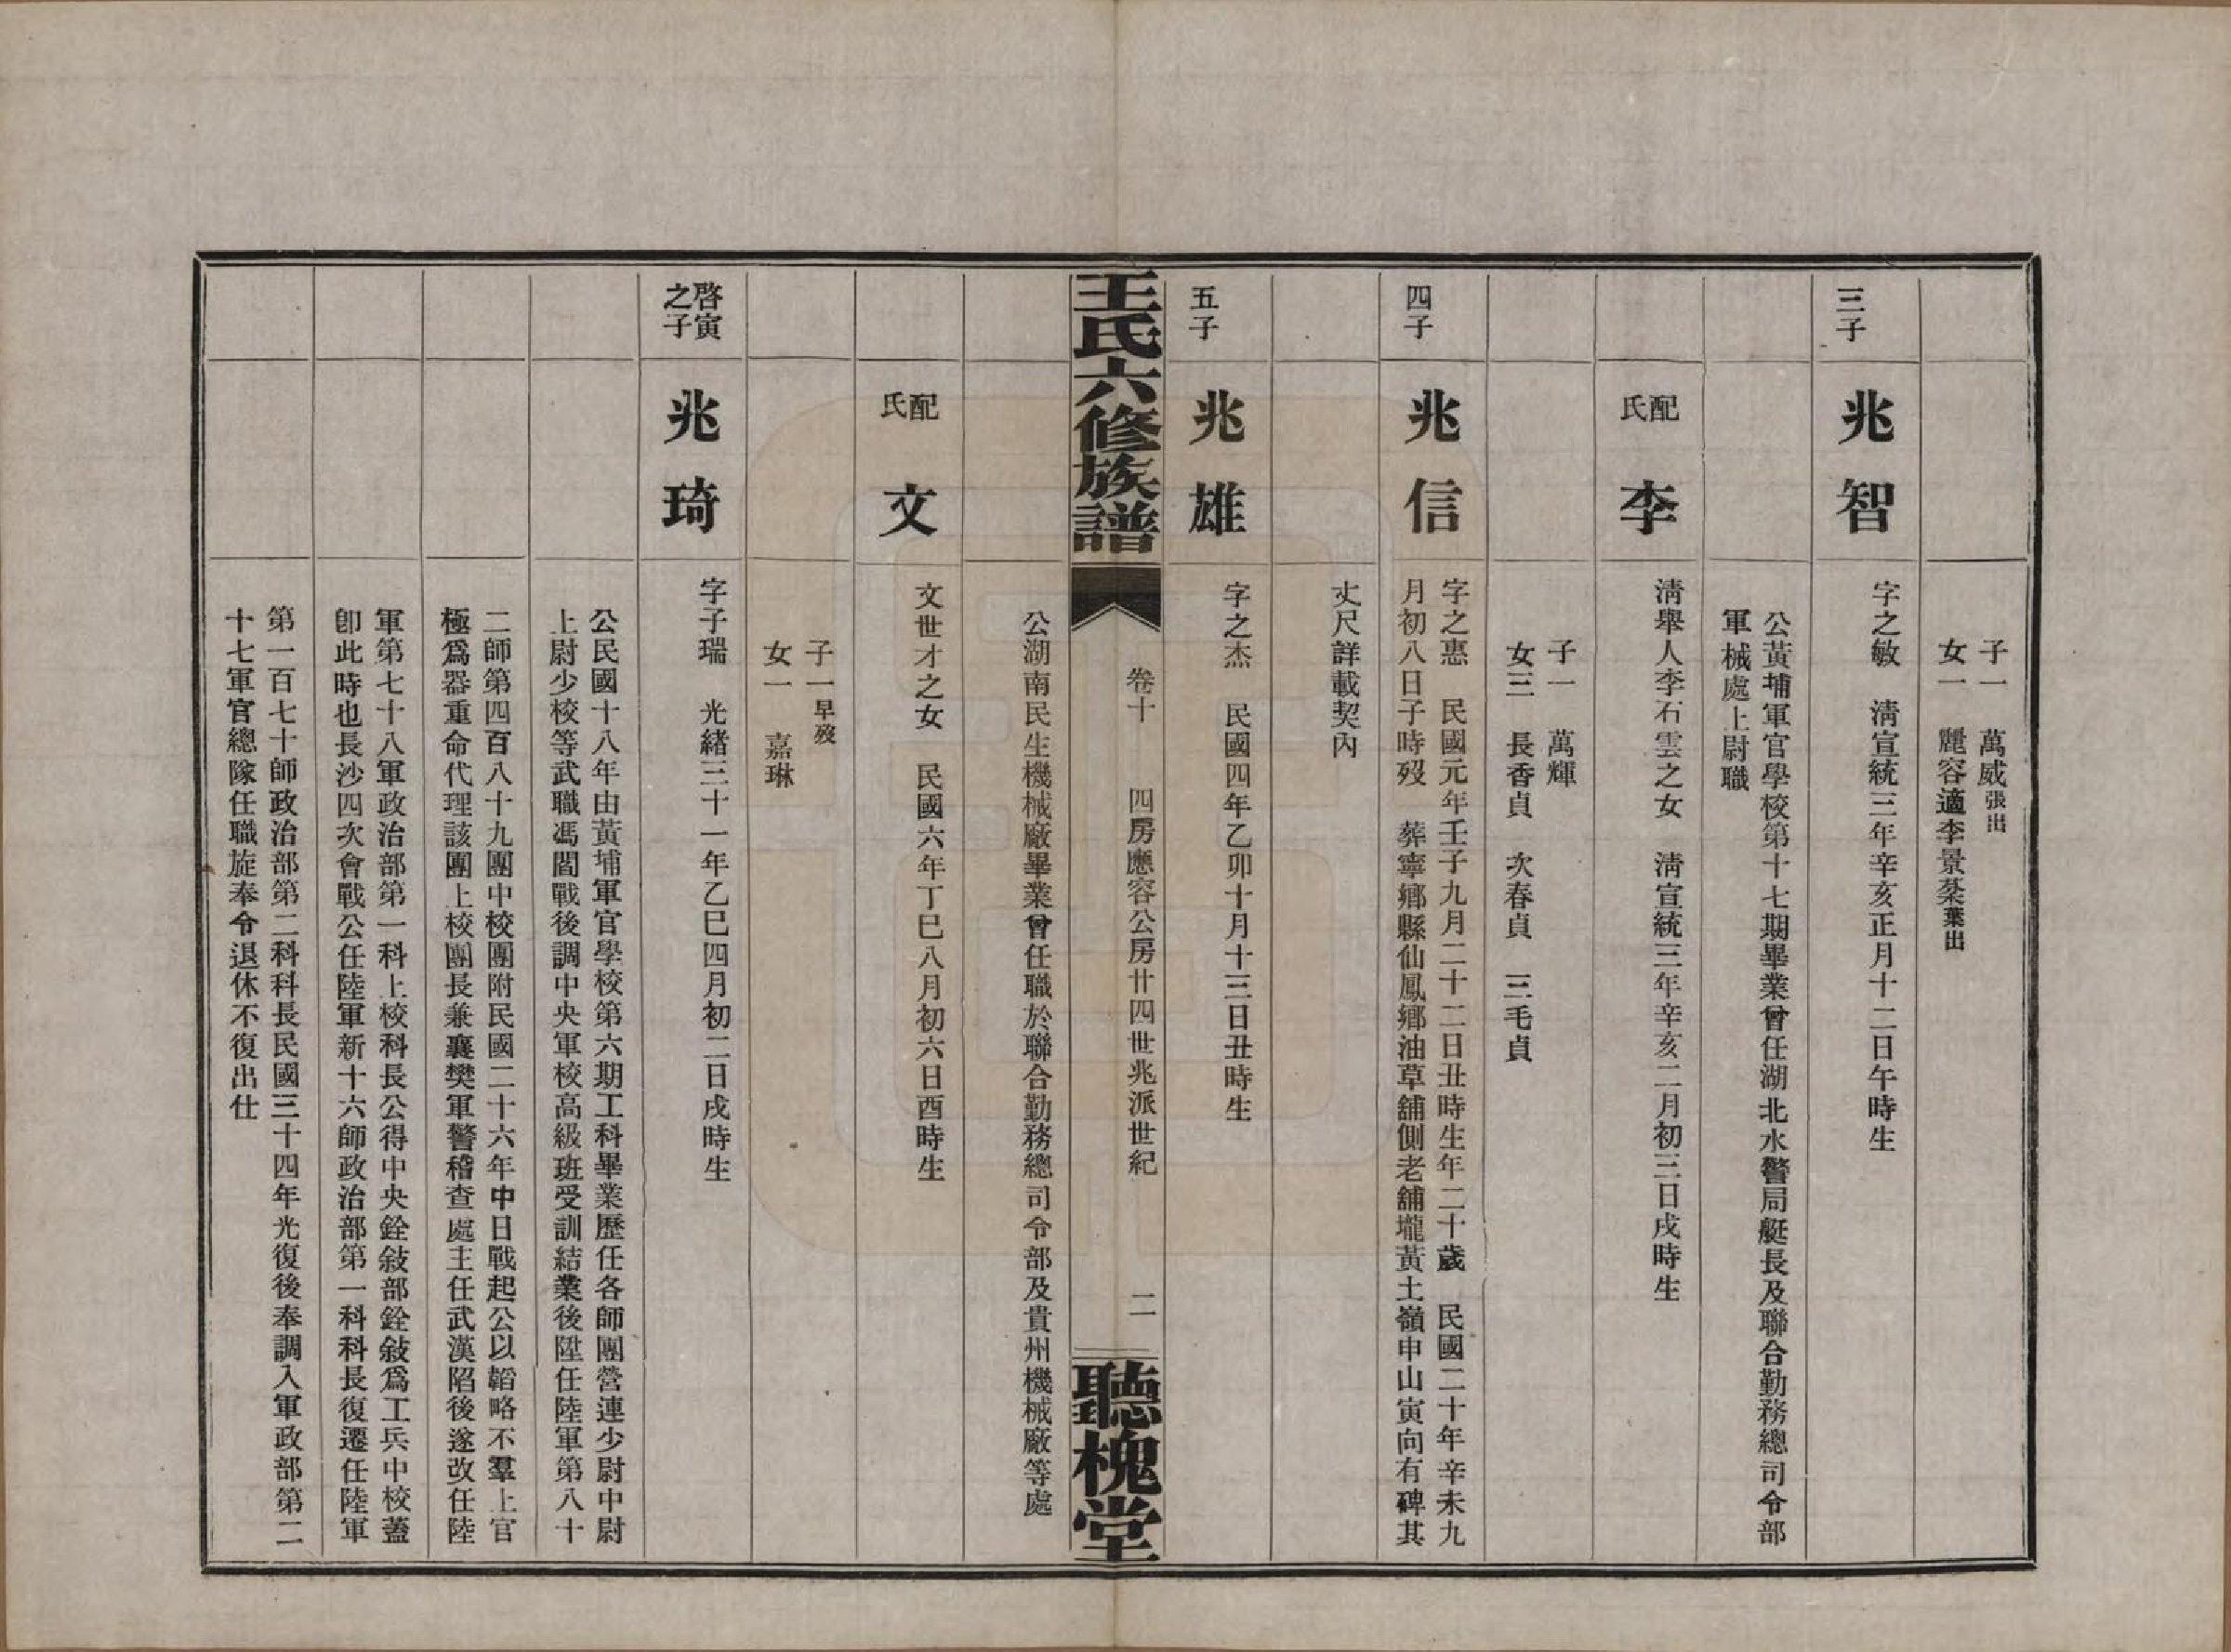 子一　萬威張出
女一　麗容適李景棻葉出
三子
兆智
字之敏　淸宣統三年辛亥正月十二日午時生
公黃埔軍官學校第十七期畢業曾任湖北水警局艇長及聯合勤務總司令部
軍械處上尉職
配氏
李
淸舉人李石雲之女　淸宣統三年辛亥二月初三日戌時生
子一　萬輝
女三　長香貞　次春貞　三毛貞
四子
兆信
字之惠　民國元年壬子九月二十二日丑時生年二十歲　民國二十年辛未九
月初八日子時歿　葬寧鄉縣仙鳳鄉油草舖側老舖壠黃土嶺申山寅向有碑其
丈尺詳載契內
五子
兆雄
字之杰　民國四年乙卯十月十三日丑時生
公湖南民生機械廠畢業曾任職於聯合勤務總司令部及貴州機械廠等處
王氏六修族譜
卷十　四房應容公房廿四世兆派世紀　二
聽槐堂
配氏
文
文世才之女　民國六年丁巳八月初六日酉時生
子一早歿
女一　嘉琳
啓寅之子
兆琦
字子瑞　光緒三十一年乙巳四月初二日戌時生
公民國十八年由黃埔軍官學校第六期工科畢業歷任各師團營連少尉中尉
上尉少校等武職馮閻戰後調中央軍校高級班受訓結業後陞任陸軍第八十
二師第四百八十九團中校團附民國二十六年中日戰起公以韜略不羣上官
極爲器重命代理該團上校團長兼襄樊軍警稽查處主任武漢陷後遂改任陸
軍第七十八軍政治部第一科上校科長公得中央銓敍部銓敍爲工兵中校蓋
卽此時也長沙四次會戰公任陸軍新十六師政治部第一科科長復遷任陸軍
第一百七十師政治部第二科科長民國三十四年光復後奉調入軍政部第二
十七軍官總隊任職旋奉令退休不復出仕